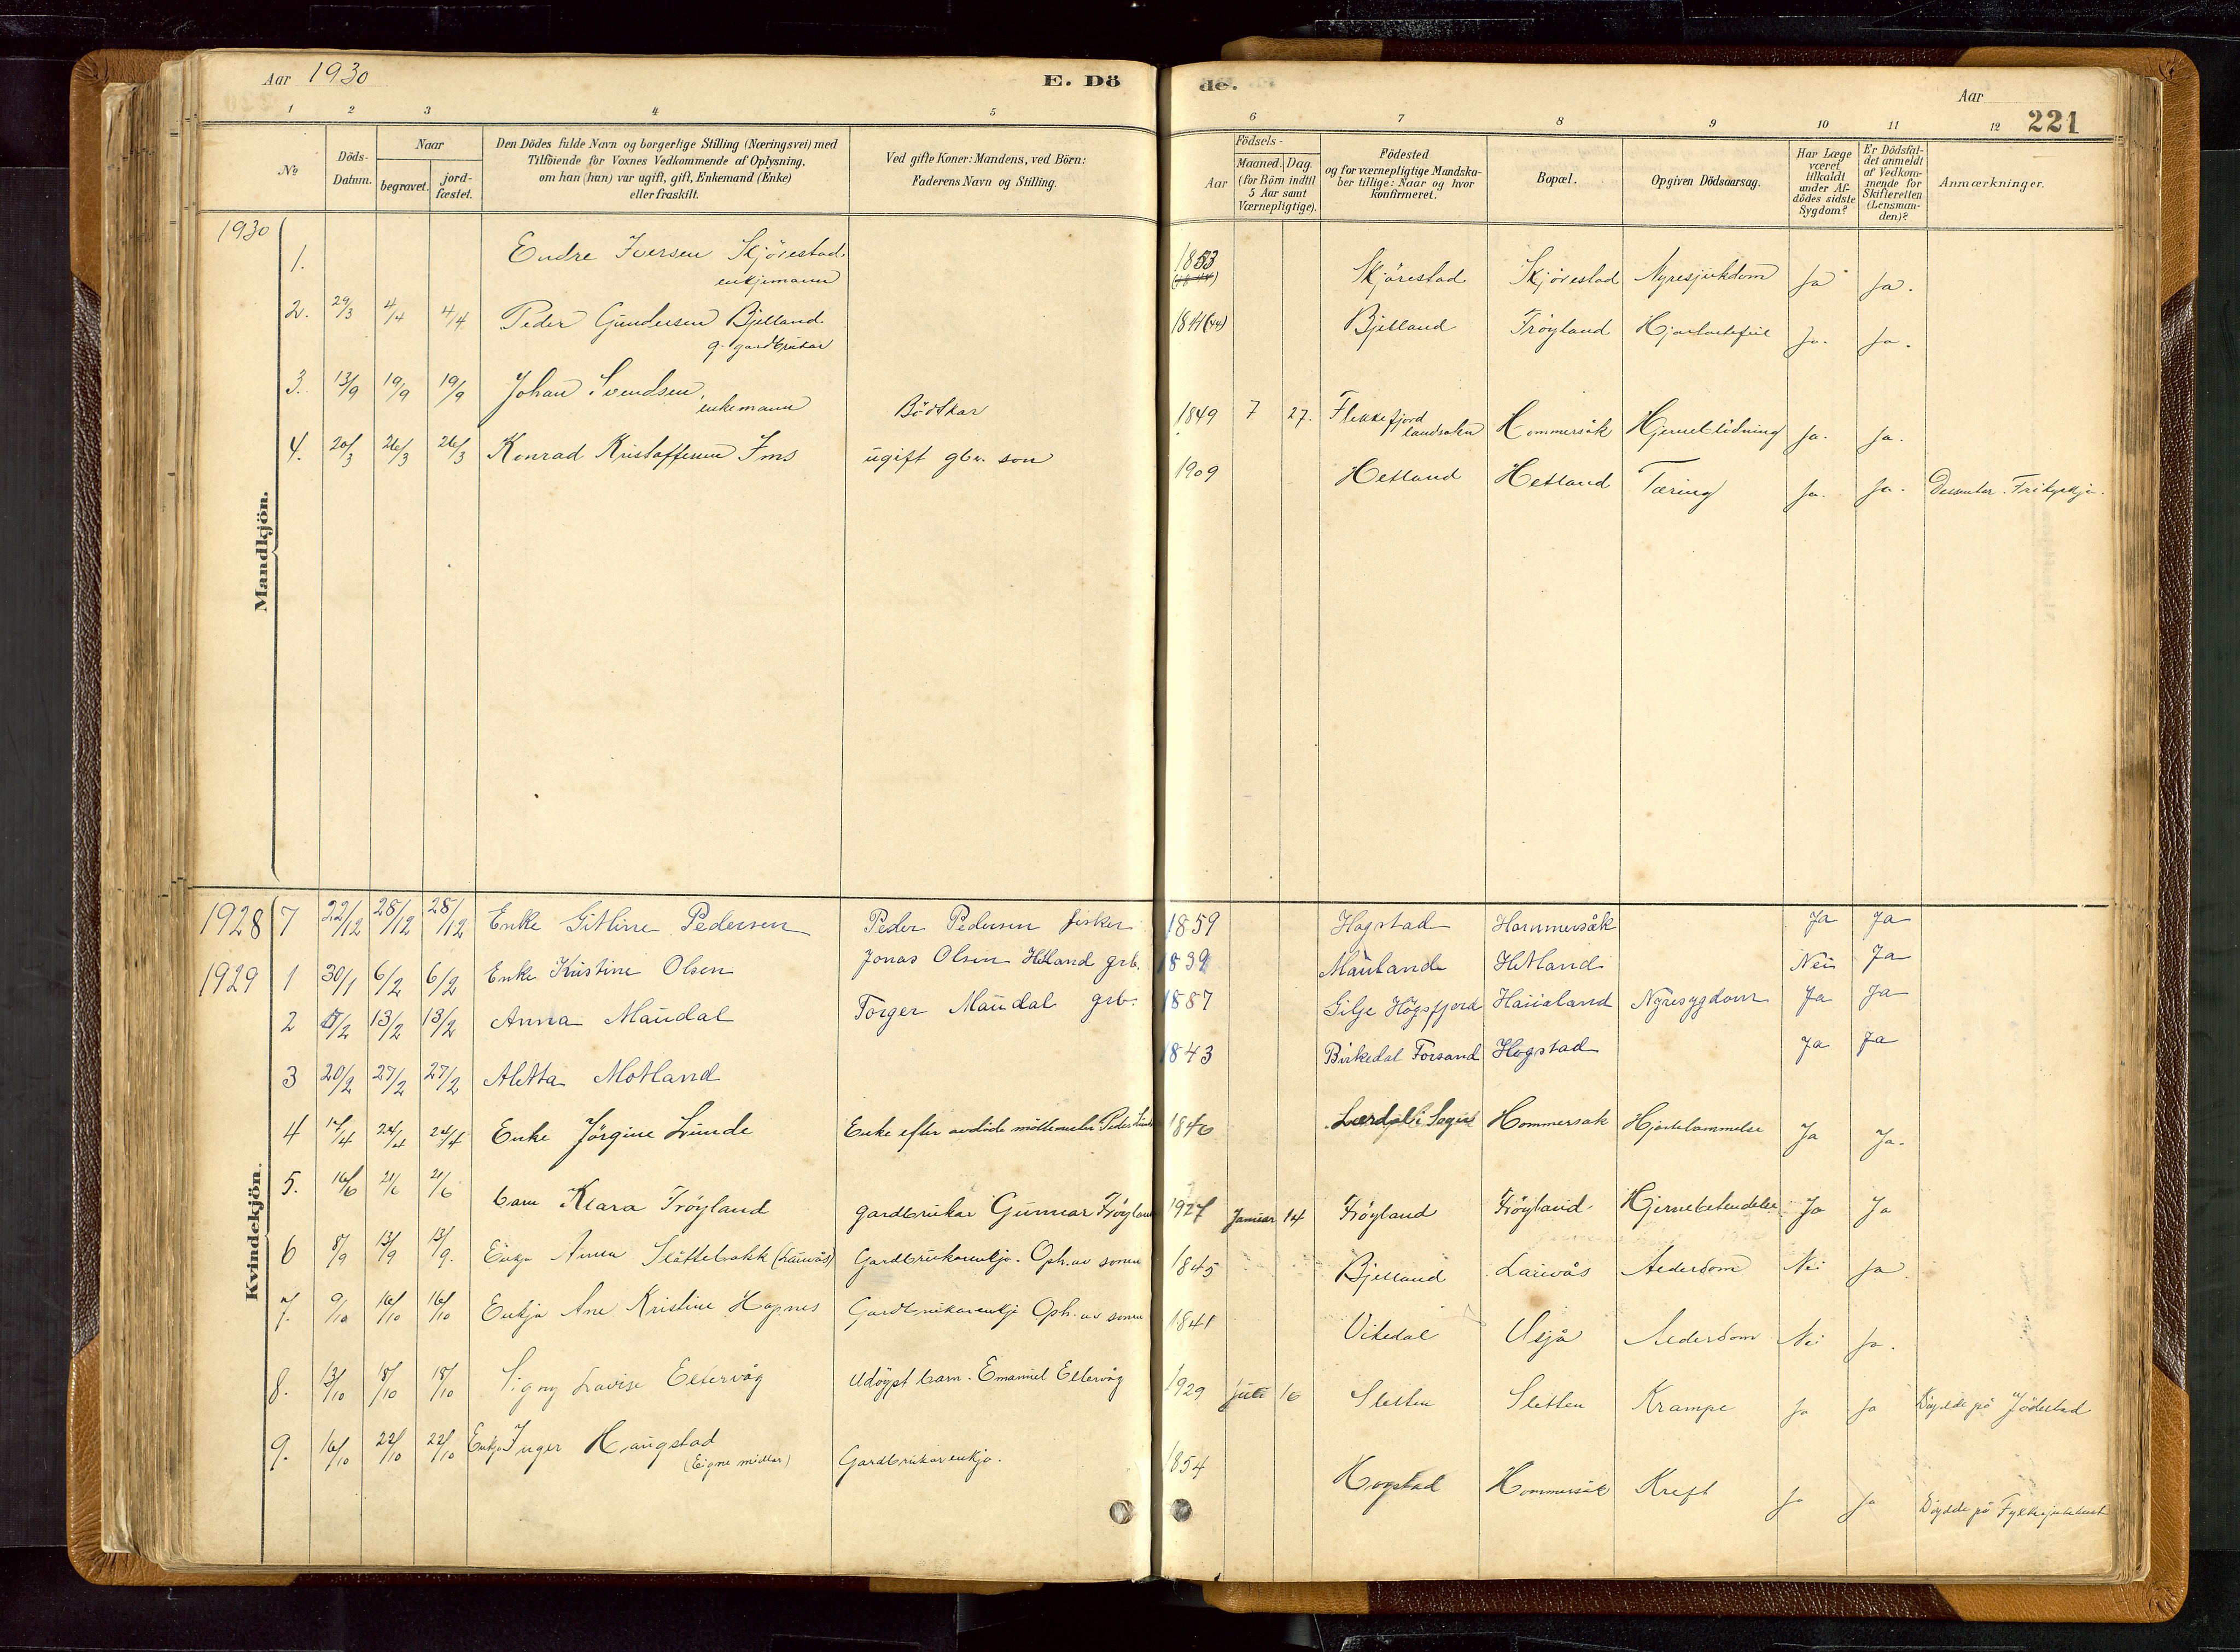 Aar 1930 E. Dö de. Aar 221
1 2 3 4 5 6 7 8 9 10 11 12
№
Döds-Datum.
Naar begravet. jordfæstet.
Den Dödes fulde Navn og borgerlige Stilling (Næringsvei) med
Tilföiende for Voxnes Vedkommende af Oplysning,
om han (hun) var ugift, gift, Enkemand (Enke)
eller fraskilt.
Ved gifte Koner: Mandens, ved Börn:
Faderens Navn og Stilling.
Födsels-
Aar Maaned. Dag.
(for Börn indtil
5 Aar samt
Værnepligtige).
Födested
og for værnepligtige Mandskaber tillige: Naar og hvor
konfirmeret.
Bopæl.
Opgiven Dödsaarsag.
Har Læge været tilkaldt under Afdödes sidste Sygdom?
Er Dödsfaldet anmeldt af Vedkommende for Skifteretten (Lensmanden)?
Anmærkninger.
Mandkjön.
1930
1. Endre Iversen Skjörestad 1853 Skjörestad Skjörestad Nyresjukdom Ja Ja.
enkjemann
2. 29/3 4/4 4/4 Peder Gundersen Bjelland 1841 (44) Bjelland Fröyland Hjartefeil Ja. Ja.
g. gardbrukar
3. 13/9 19/9 19/9 Johan Svendsen, Bödkar 1849 7 27. Flekkefjord landsokn Hommersåk Hjerneblödning Ja. Ja.
enkemann
4. 20/3 26/3 26/3 Konrad Kristoffersen Ims ugift gbr. son 1909 Hetland Hetland Tæring Ja. Ja. Dissenter. Frikyrkja.
Kvindekjön.
1928 7 22/12 28/12 28/12 Enke Gitline Pedersen Peder Pedersen fisker 1859 Hogstad Hommersåk Ja Ja
1929 1 30/1 6/2 6/2 Enke Kristine Olsen Jonas Olsen Hetland grb. 1839 Mauland Hetland Nei Ja
2 13/2 13/2 Anna Maudal Torger Maudal grb. 1887 Gilje Högsfjord Haualand Nyresygdom Ja Ja
3 20/2 27/2 27/2 Aletta Motland 1843 Birkedal Forsand Hogstad Ja Ja
4 17/4 24/4 24/4 Enke Jörgine Lunde Enke efter avdöde Peder Lunde 1846 Lærdal i Sogn Hommersak Hjertelammelse Ja Ja.
5. 16/6 21/6 21/6 barn Klara Fröyland gardbrukar Gunnar Fröyland 1927 Januar 14 Fröyland Fröyland Hjernebetendelse Ja Ja
6 8/9 13/9 13/9. Enkja Anna Slåttebakk (Lauvås) Gardbrukarenkje. Oph. av sonen 1845 Bjelland Lauvås Alderdom Nei Ja
7. 9/10 16/10 16/10 Enkja Ane Kristine Hapnes Gardbrukarenkje Oph. av sonen 1841 Vikedal Usjå Alderdom Nei Ja.
8. 13/10 18/10 18/10 Signy Lovise Eltervåg Udöypt barn. Emanuel Eltervåg 1929 Juli 16 Sletten Sletten Krampe Ja Ja Döydde på Jödestad
9. 16/10 22/10 22/10 Enkja Inger Haugstad Gardbrukarenkja. 1854 Hogstad Hommersåk Kreft Ja Ja Döydde på Fylkesjukehuset
(Eigne midlar)